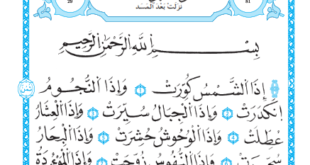 نزلت بعد المسد
بِسْمِ اللَّهِ الرَّحْمَٰنِ الرَّحِيمِ
إِذَا الشَّمْسُ كُوِّرَتْ وَإِذَا النُّجُومُ
انكَدَرَتْ وَإِذَا الْجِبَالُ سُيِّرَتْ وَإِذَا الْعِشَارُ
عُطِّلَتْ وَإِذَا الْوُحُوشُ حُشِرَتْ وَإِذَا الْبِحَارُ
سُجِّرَتْ وَإِذَا النُّفُوسُ زُوِّجَتْ وَإِذَا الْمَوْءُودَةُ